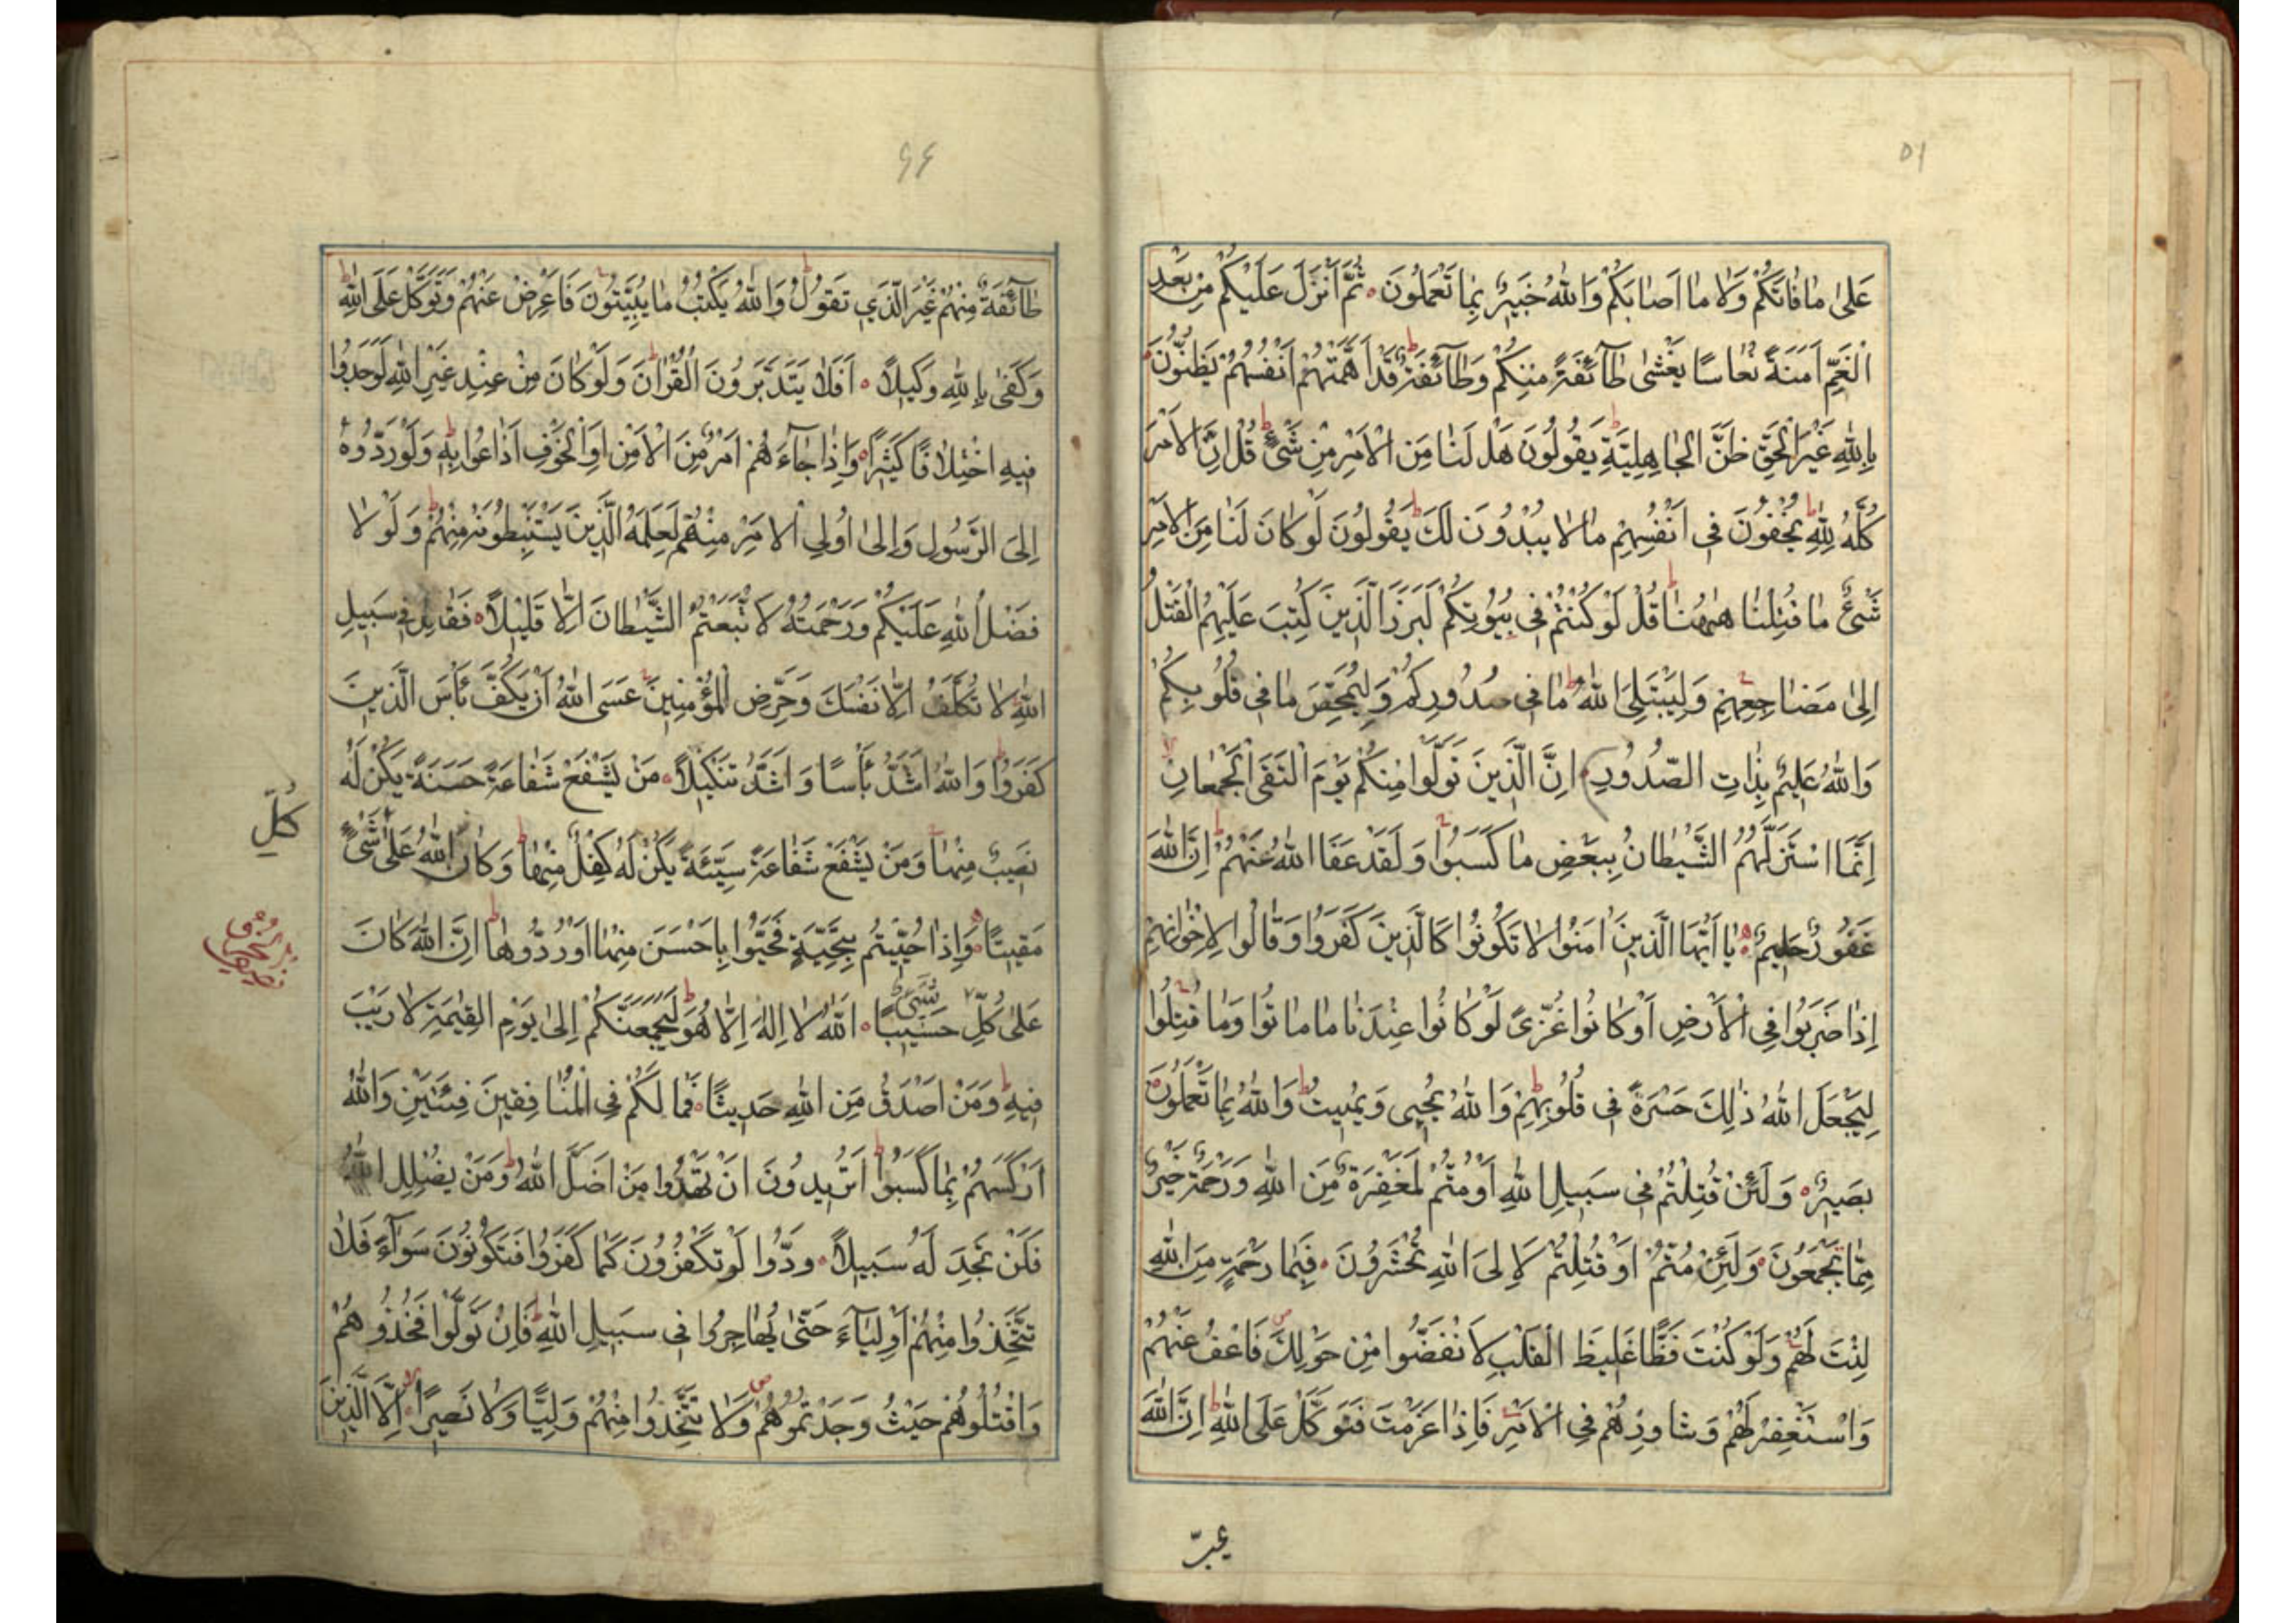 ٥١
عَلىٰ مَا فَاتَكُمْ وَلَا مَا اَصَابَكُمْ وَاللّٰهُ خَبِيرٌ بِمَا تَعْمَلُونَ ثُمَّ اَنْزَلَ عَلَيْكُمْ مِنْ بَعْدِ
الْغَمِّ اَمَنَةً نُعَاسًا يَغْشىٰ طَآئِفَةً مِنْكُمْ وَطَآئِفَةٌ قَدْ اَهَمَّتْهُمْ اَنْفُسُهُمْ يَظُنُّونَ
بِاللّٰهِ غَيْرَ الْحَقِّ ظَنَّ الْجَاهِلِيَّةِ يَقُولُونَ هَلْ لَنَا مِنَ الْاَمْرِ مِنْ شَىْءٍ قُلْ اِنَّ الْاَمْرَ
كُلَّهُ لِلّٰهِ يُخْفُونَ فِى اَنْفُسِهِمْ مَالَا يُبْدُونَ لَكَ يَقُولُونَ لَوْ كَانَ لَنَا مِنَ الْاَمْرِ
شَىْءٌ مَا قُتِلْنَا هٰهُنَا قُلْ لَوْ كُنْتُمْ فِى بُيُوتِكُمْ لَبَرَزَ الَّذِينَ كُتِبَ عَلَيْهِمُ الْقَتْلُ
اِلىٰ مَضَاجِعِهِمْ وَلِيَبْتَلِىَ اللّٰهُ مَا فِى صُدُورِكُمْ وَلِيُمَحِّصَ مَا فِى قُلُوبِكُمْ
وَاللّٰهُ عَلِيمٌ بِذَاتِ الصُّدُورِ اِنَّ الَّذِينَ تَوَلَّوْا مِنْكُمْ يَوْمَ الْتَقَى الْجَمْعَانِ
اِنَّمَا اسْتَزَلَّهُمُ الشَّيْطَانُ بِبَعْضِ مَا كَسَبُوا وَلَقَدْ عَفَا اللّٰهُ عَنْهُمْ اِنَّ اللّٰهَ
غَفُورٌ حَلِيمٌ يَا اَيُّهَا الَّذِينَ اٰمَنُوا لَا تَكُونُوا كَالَّذِينَ كَفَرُوا وَقَالُوا لِاِخْوَانِهِمْ
اِذَا ضَرَبُوا فِى الْاَرْضِ اَوْ كَانُوا غُزًّى لَوْ كَانُوا عِنْدَنَا مَا مَاتُوا وَمَا قُتِلُوا
لِيَجْعَلَ اللّٰهُ ذٰلِكَ حَسْرَةً فِى قُلُوبِهِمْ وَاللّٰهُ يُحْيِى وَيُمِيتُ وَاللّٰهُ بِمَا تَعْمَلُونَ
بَصِيرٌ وَلَئِنْ قُتِلْتُمْ فِى سَبِيلِ اللّٰهِ اَوْ مُتُّمْ لَمَغْفِرَةٌ مِنَ اللّٰهِ وَرَحْمَةٌ خَيْرٌ
مِمَّا يَجْمَعُونَ وَلَئِنْ مُتُّمْ اَوْ قُتِلْتُمْ لَاِلَى اللّٰهِ تُحْشَرُونَ فَبِمَا رَحْمَةٍ مِنَ اللّٰهِ
لِنْتَ لَهُمْ وَلَوْ كُنْتَ فَظًّا غَلِيظَ الْقَلْبِ لَانْفَضُّوا مِنْ حَوْلِكَ فَاعْفُ عَنْهُمْ
وَاسْتَغْفِرْ لَهُمْ وَشَاوِرْهُمْ فِى الْاَمْرِ فَاِذَا عَزَمْتَ فَتَوَكَّلْ عَلَى اللّٰهِ اِنَّ اللّٰهَ
٦٤
طَآئِفَةٌ مِنْهُمْ غَيْرَ الَّذِي تَقُولُ وَاللّٰهُ يَكْتُبُ مَا يُبَيِّتُونَ فَاَعْرِضْ عَنْهُمْ وَتَوَكَّلْ عَلَى اللّٰهِ
وَكَفىٰ بِاللّٰهِ وَكِيلًا اَفَلَا يَتَدَبَّرُونَ الْقُرْاٰنَ وَلَوْ كَانَ مِنْ عِنْدِ غَيْرِ اللّٰهِ لَوَجَدُوا
فِيهِ اخْتِلَافًا كَثِيرًا وَاِذَا جَآءَهُمْ اَمْرٌ مِنَ الْاَمْنِ اَوِ الْخَوْفِ اَذَاعُوا بِهِ وَلَوْ رَدُّوهُ
اِلَى الرَّسُولِ وَاِلىٰ اُولِى الْاَمْرِ مِنْهُمْ لَعَلِمَهُ الَّذِينَ يَسْتَنْبِطُونَهُ مِنْهُمْ وَلَوْلَا
فَضْلُ اللّٰهِ عَلَيْكُمْ وَرَحْمَتُهُ لَاتَّبَعْتُمُ الشَّيْطَانَ اِلَّا قَلِيلًا فَقَاتِلْ فِى سَبِيلِ
اللّٰهِ لَا تُكَلَّفُ اِلَّا نَفْسَكَ وَحَرِّضِ الْمُؤْمِنِينَ عَسَى اللّٰهُ اَنْ يَكُفَّ بَأْسَ الَّذِينَ
كَفَرُوا وَاللّٰهُ اَشَدُّ بَأْسًا وَاَشَدُّ تَنْكِيلًا مَنْ يَشْفَعْ شَفَاعَةً حَسَنَةً يَكُنْ لَهُ
نَصِيبٌ مِنْهَا وَمَنْ يَشْفَعْ شَفَاعَةً سَيِّئَةً يَكُنْ لَهُ كِفْلٌ مِنْهَا وَكَانَ اللّٰهُ عَلىٰ شَىْءٍ
كُلِّ
مُقِيتًا وَاِذَا حُيِّيتُمْ بِتَحِيَّةٍ فَحَيُّوا بِاَحْسَنَ مِنْهَا اَوْ رُدُّوهَا اِنَّ اللّٰهَ كَانَ
عَلىٰ كُلِّ شَىْءٍ حَسِيبًا اَللّٰهُ لَا اِلٰهَ اِلَّا هُوَ لَيَجْمَعَنَّكُمْ اِلىٰ يَوْمِ الْقِيٰمَةِ لَا رَيْبَ
فِيهِ وَمَنْ اَصْدَقُ مِنَ اللّٰهِ حَدِيثًا فَمَا لَكُمْ فِى الْمُنَافِقِينَ فِئَتَيْنِ وَاللّٰهُ
اَرْكَسَهُمْ بِمَا كَسَبُوا اَتُرِيدُونَ اَنْ تَهْدُوا مَنْ اَضَلَّ اللّٰهُ وَمَنْ يُضْلِلِ اللّٰهُ
فَلَنْ تَجِدَ لَهُ سَبِيلًا وَدُّوا لَوْ تَكْفُرُونَ كَمَا كَفَرُوا فَتَكُونُونَ سَوَآءً فَلَا
تَتَّخِذُوا مِنْهُمْ اَوْلِيَآءَ حَتّىٰ يُهَاجِرُوا فِى سَبِيلِ اللّٰهِ فَاِنْ تَوَلَّوْا فَخُذُوهُمْ
وَاقْتُلُوهُمْ حَيْثُ وَجَدْتُمُوهُمْ وَلَا تَتَّخِذُوا مِنْهُمْ وَلِيًّا وَلَا نَصِيرًا اِلَّا الَّذِينَ